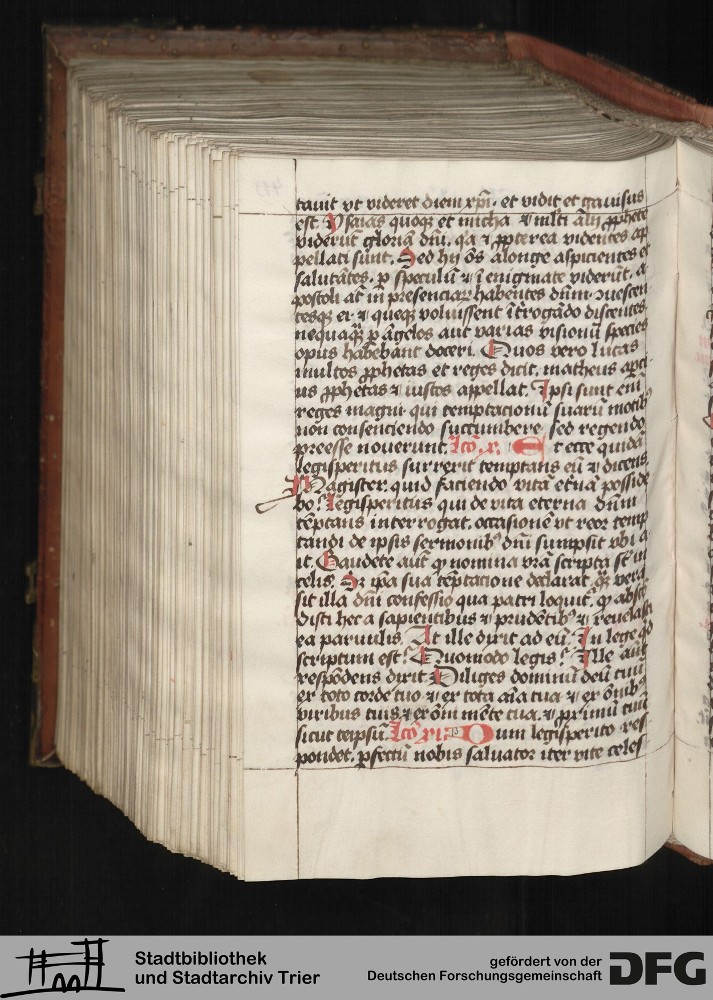 tauit vt videret diem xpi. et vidit et gauisus
est Ysaias quoqz et micha ⁊ mlti alij pphete
viderūt gloriā dni. qa ⁊ ppterea videntes ap
pellati sunt. Sed hij oēs alonge aspicientes et
salutātes. p speculū ⁊ ī enigmate viderūt. a
postoli aūt in presenciar habentes dnm. ꝯuescen
tesqz ei. ⁊ queqz voluissent īterrogādo discentes
nequaqȝ p āgelos aut varias visionū species
opus habebant doceri. Quos vero lucas
multos pphetas et reges dicit. matheus apti
us pphetas ⁊ iustos appellat. Ipsi sunt eni
reges magni qui temptacionū suarū motibꝰ
non consenciendo succumbere sed regendo
preesse nouerunt. lco. x. Et ecce quidā
legisperitus surrexit temptans eū ⁊ dicens
Magister. quid faciendo vitā etnā posside
bo? Legisperitus qui de vita eterna dnm
tēptans interrogat. occasionē vt reor temp
tandi de ipsis sermonibꝰ dni sumpsit vbi a
it. Gaudete aūt qꝫ nomina vrā scripta st in
celis. Sz ipa sua tēptacione declarat qȝ vera
sit illa dni confessio qua patri loquit. qꝫ absco
disti hec a sapientibus ⁊ prudētibꝰ ⁊ reuelasti
ea paruulis. At ille dixit ad eū. In lege qd
scriptum est? Quomodo legis? Ille aūt
respōdens dixit. Diliges dominū deū tuū
ex toto corde tuo ⁊ ex tota aīa tua ⁊ ex oīnibꝰ
viribus tuis ⁊ ex oīm mēte tua. ⁊ primū tuū
sicut teipsū. lco. xi. Dum legisperito res
pondet. pfectū nobis saluator iter vite celes
Stadtbibliothek
und Stadtarchiv Trier
gefördert von der
Deutschen Forschungsgemeinschaft
DFG